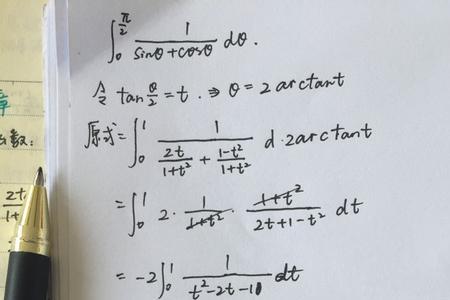 ∫₀^(π/2) 1/(sinθ+cosθ) dθ.
令 tan θ/2 = t. ⇒ θ = 2arctant
原式=∫₀¹ 1/(2t/(1+t²) + (1-t²)/(1+t²)) d·2arctant
=∫₀¹ 2·1/(1+t²)·(1+t²)/(2t+1-t²) dt
= -2∫₀¹ 1/(t²-2t-1) dt
章
数:
2t
1+